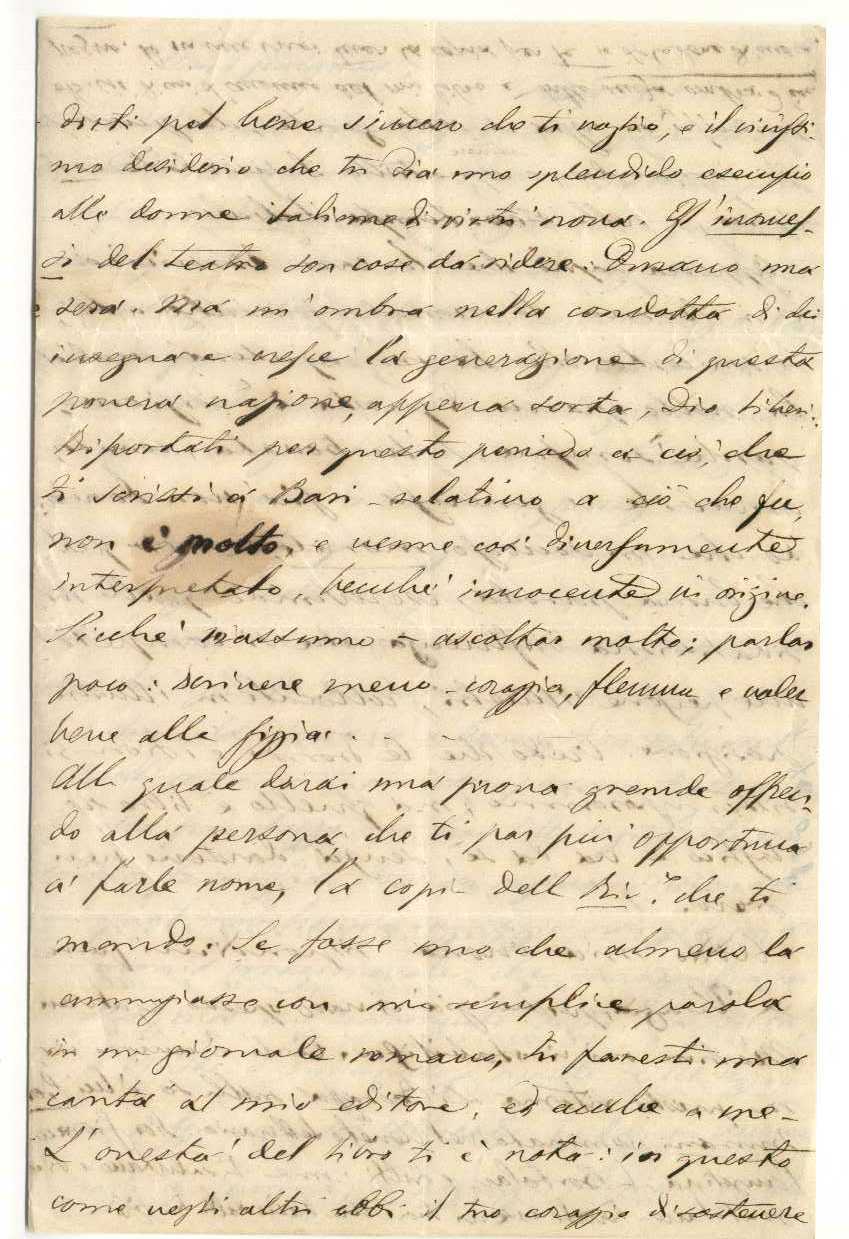 dirti pel bene sincero che ti voglio, e il vivissi-
mo desiderio che tu dia uno splendido esempio
alle donne italiane di virtù nova. Gl'insucces-
si del teatro son cose da ridere: Durano una
sera. Ma un'ombra nella condotta di chi
insegna e cresce la generazione di questa
povera nazione, appena sorta, Dio liberi.
Riportati per questo periodo a ciò, che
ti scrissi a Bari - relativo a ciò che fu,
non è molto, e venne così diversamente
interpretato, benché innocente in origine.
Sicché riassumo - ascoltar molto; parlar
poco: scrivere meno - coraggio, flemma e voler
bene alla Gigia.
Alla quale darai una prova grande offren-
do alla persona, che ti par più opportuna
a farle nome, la copia dell che ti
mando. Se fosse uno che almeno la
annunziasse con una semplice parola
in un giornale romano, tu faresti una
carità al mio editore, ed anche a me -
L'onestà del libro ti è nota: in questo
come negli altri ebbi il tuo coraggio di sostenere